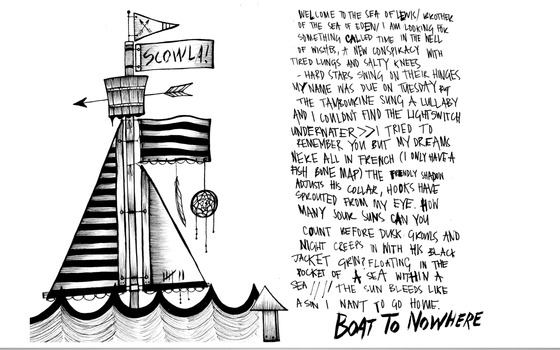 SCOWLA!
WELCOME TO THE SEA OF LEVIS/ BROTHER
OF THE SEA OF EDEN/ I AM LOOKING FOR
SOMETHING CALLED TIME IN THE WELL
OF WISHES, A NEW CONSPIRACY WITH
TIRED LUNGS AND SALTY KNEES
- HARD STARS SWING ON THEIR HINGES
MY NAME WAS DUE ON TUESDAY BUT
THE TAMBOURINE SUNG A LULLABY
AND I COULDNT FIND THE LIGHTSWITCH
UNDERWATER>>I TRIED TO
REMEMBER YOU BUT MY DREAMS
WERE ALL IN FRENCH (I ONLY HAVE A
FISH BONE MAP) THE FRIENDLY SHADOW
ADJUSTS HIS COLLAR, HOOKS HAVE
SPROUTED FROM MY EYE. HOW
MANY SOUR SUNS CAN YOU
COUNT BEFORE DUSK. GROWLS AND
NIGHT CREEPS IN WITH HIS BLACK
JACKET GRIN? FLOATING IN THE
POCKET OF A SEA WITHIN A
SEA //// THE SUN BLEEDS LIKE
A SUN I WANT TO GO HOME.
BOAT TO NOWHERE